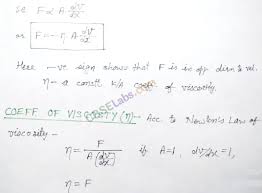 se F ∝ A. dV/dx
or F = -η A. dV/dx
Here -ve sign shows that F is in opp. dirn to vel.
η - a constt k/a coeff of viscosity.
COEFF. OF VISCOSITY (η)- Acc. to Newton's Law of
viscosity -
η = F / A(dV/dx) if A=1, dV/dx = 1,
η = F
CBSELabs.com